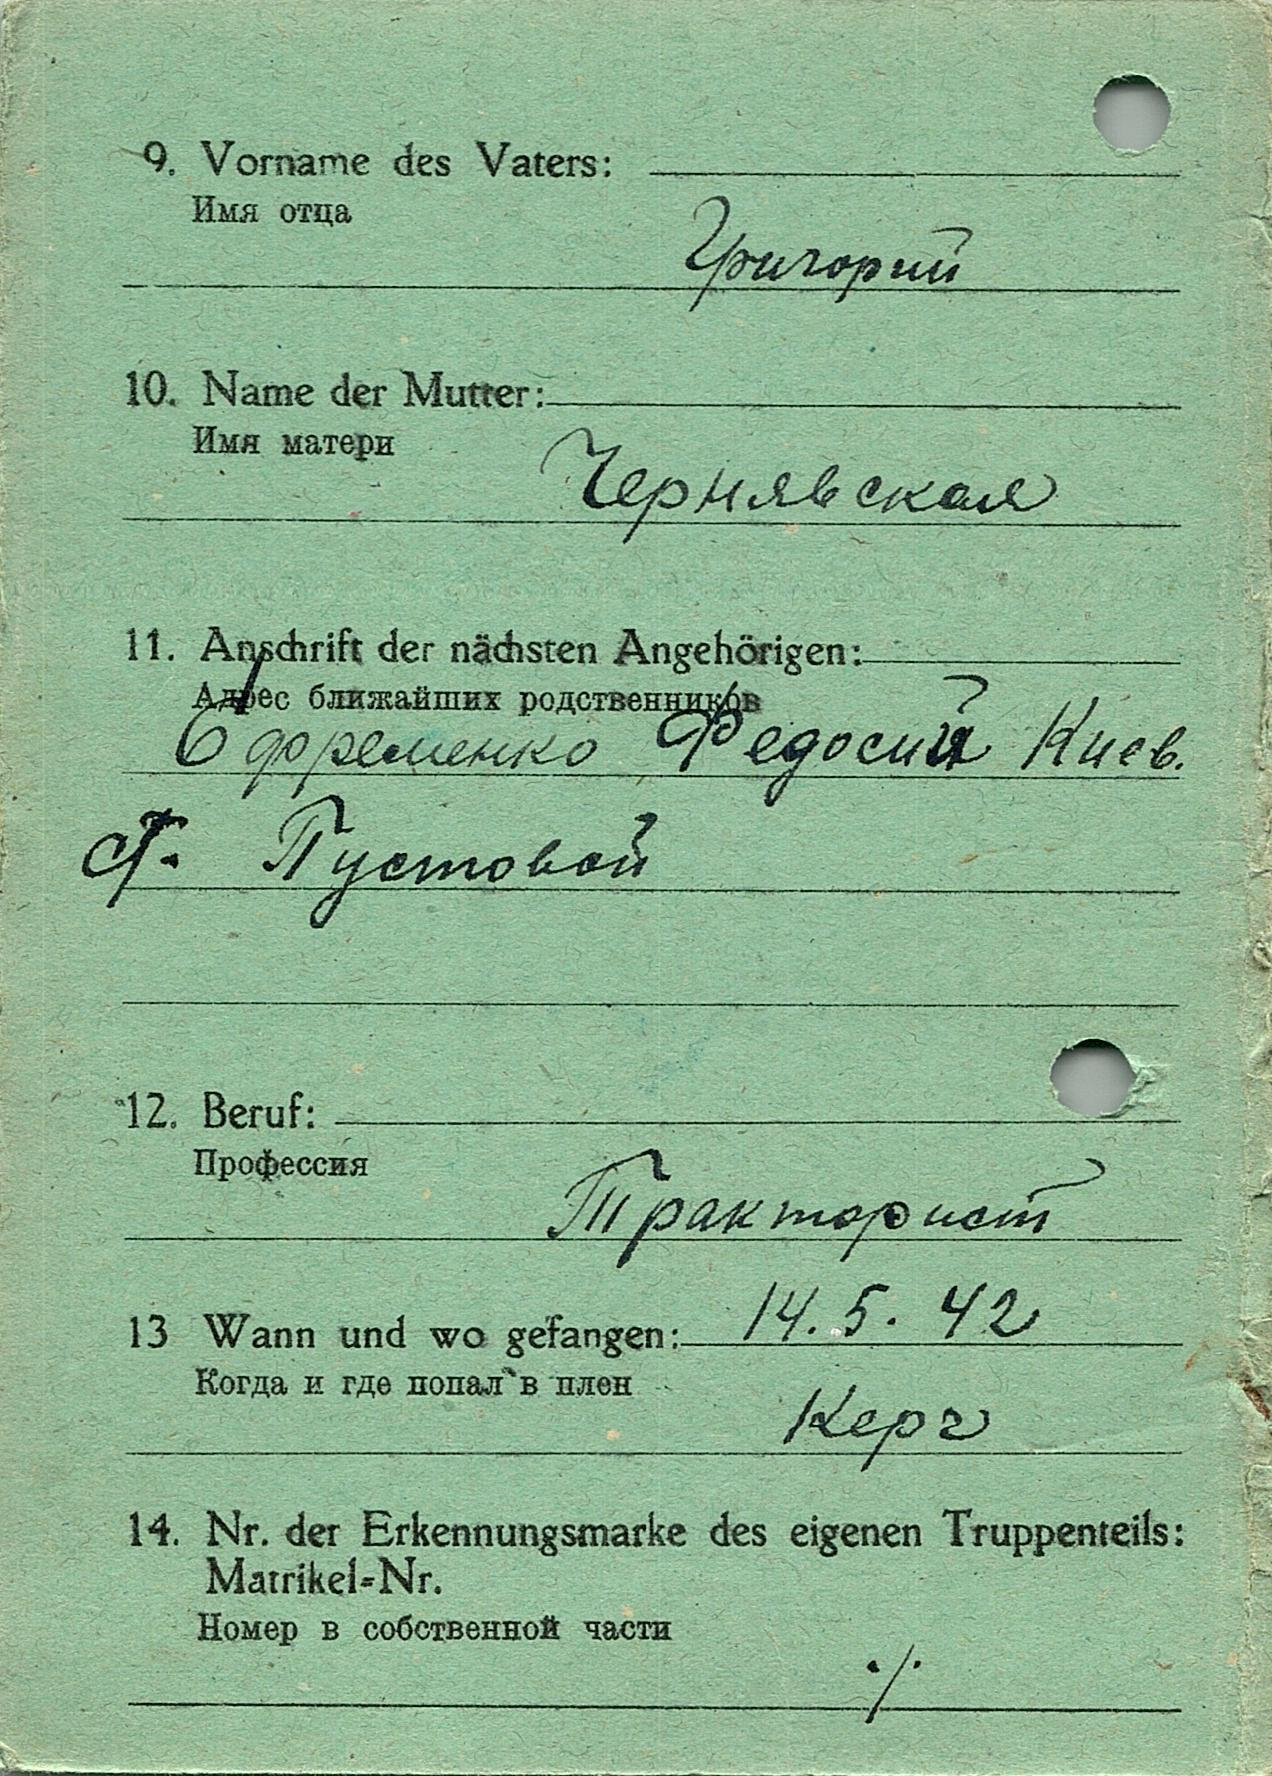 9. Vorname des Vaters:
Имя отца
Григорий
10. Name der Mutter:
Имя матери
Чернявская
11. Anschrift der nächsten Angehörigen:
Адрес ближайших родственников
Ефременко Федосий Киев.
ст. Пустовой
12. Beruf:
Профессия
Тракторист
13 Wann und wo gefangen: 14.5.42
Когда и где попал в плен
Керч
14. Nr. der Erkennungsmarke des eigenen Truppenteils:
Matrikel=Nr.
Номер в собственной части
./.